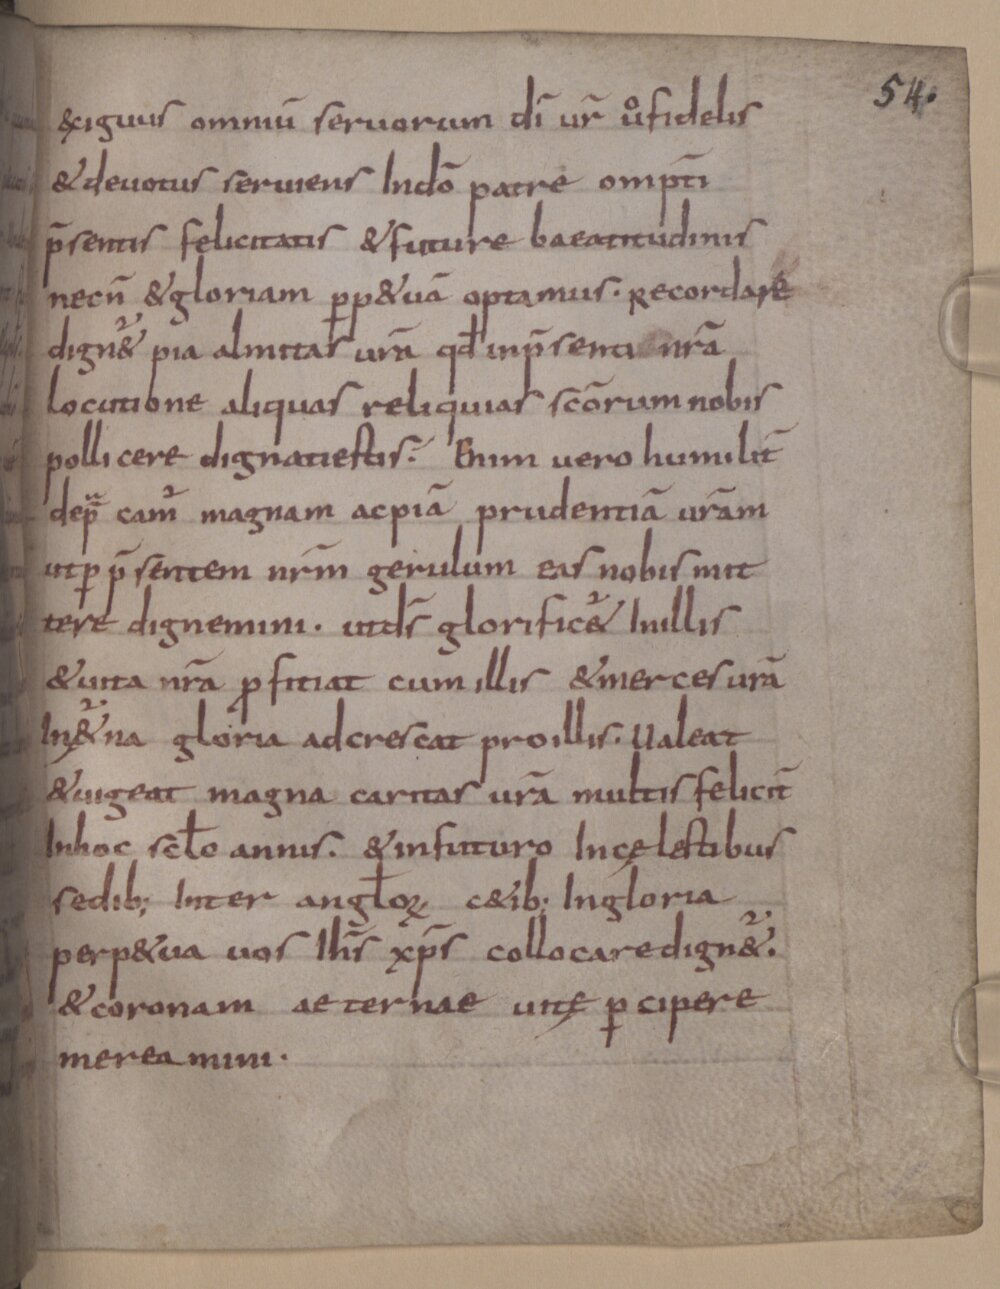 54.
&xiguus omniū seruorum dī ur̄ uͦfidelis
&deuotus seruiens Indō patre omp̄ti
p̄sentis felicitatis &future baeatitudinis
necn̄ &gloriam ꝑp&uā optamus. Recordare
dign&ᷣ pia almitas urā qđ inp̄senti nrā
locutione aliquas reliquias scōrum nobis
pollicere dignatiestis. Enim uero humilit̄
dep̄ camᷣ magnam acpiā prudentiā urām
utꝑ p̄sentem nrm̄ gerulum eas nobis mit
tere dignemini. utds̄ glorific&ᷣ Inillis
&uita nrā ꝓfitiat cum illis &merces urā
In&ᷣna gloria adcrescat pro illis. Ualeat
&uigeat magna caritas urā multis felicit̄
Inhoc scło annis. &infuturo Incęlestibus
sedib; Inter angłoꝝ c&ib; Ingloria
perp&ua uos Ihs̄ xp̄s collocare dign&ᷣ.
&coronam aeternae uitę ꝑcipere
mereamini.